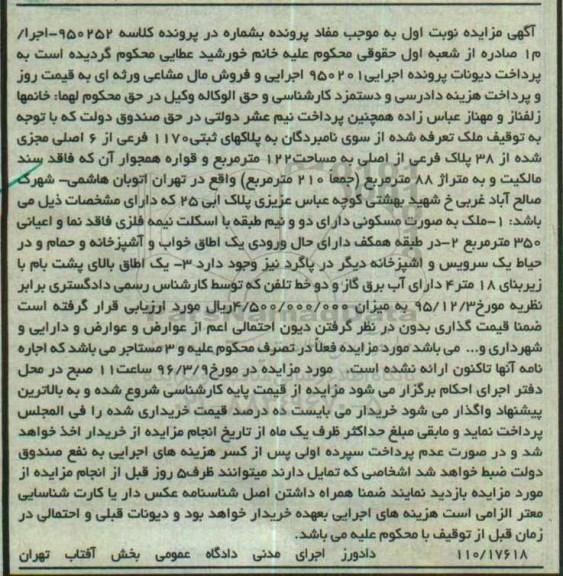 آگهی مزایده نوبت اول به موجب مفاد پرونده بشماره در پرونده کلاسه ۹۵۰۲۵۲-اجرا/
م۱ صادره از شعبه اول حقوقی محکوم علیه خانم خورشید عطایی محکوم گردیده است به
پرداخت دیونات پرونده اجرایی۹۵۰۲۰۱ اجرایی و فروش مال مشاعی ورثه ای به قیمت روز
و پرداخت هزینه دادرسی و دستمزد کارشناسی و حق الوکاله وکیل در حق محکوم لهما: خانمها
زلفناز و مهناز عباس زاده همچنین پرداخت نیم عشر دولتی در حق صندوق دولت که با توجه
به توقیف ملک تعرفه شده از سوی نامبردگان به پلاکهای ثبتی۱۱۷۰ فرعی از ۶ اصلی مجزی
شده از ۳۸ پلاک فرعی از اصلی به مساحت۱۲۲ مترمربع و قواره همجوار آن که فاقد سند
مالکیت و به متراژ ۸۸ مترمربع (جمعا ۲۱۰ مترمربع) واقع در تهران اتوبان هاشمی- شهرک
صالح آباد غربی خ شهید بهشتی کوچه عباس عزیزی پلاک آبی ۲۵ که دارای مشخصات ذیل می
باشد: ۱-ملک به صورت مسکونی دارای دو و نیم طبقه با اسکلت نیمه فلزی فاقد نما و اعیانی
۳۵۰ مترمربع ۲-در طبقه همکف دارای حال ورودی یک اطاق خواب و آشپزخانه و حمام و در
حیاط یک سرویس و آشپزخانه دیگر در پاگرد نیز وجود دارد ۳- یک اطاق بالای پشت بام با
زیربنای ۱۸ متر۴ دارای آب برق گاز و دو خط تلفن که توسط کارشناس رسمی دادگستری برابر
نظریه مورخ۹۵/۱۲/۳ به میزان ۴/۵۰۰/۰۰۰/۰۰۰ریال مورد ارزیابی قرار گرفته است
ضمنا قیمت گذاری بدون در نظر گرفتن دیون احتمالی اعم از عوارض و عوارض و دارایی و
شهرداری و... می باشد مورد مزایده فعلاً در تصرف محکوم علیه و ۳ مستاجر می باشد که اجاره
نامه آنها تاکنون ارائه نشده است. مورد مزایده در مورخ۹۶/۳/۹ ساعت۱۱ صبح در محل
دفتر اجرای احکام برگزار می شود مزایده از قیمت پایه کارشناسی شروع شده و به بالاترین
پیشنهاد واگذار می شود خریدار می بایست ده درصد قیمت خریداری شده را فی المجلس
پرداخت نماید و مابقی مبلغ حداکثر ظرف یک ماه از تاریخ انجام مزایده از خریدار اخذ خواهد
شد و در صورت عدم پرداخت سپرده اولی پس از کسر هزینه های اجرایی به نفع صندوق
دولت ضبط خواهد شد اشخاصی که تمایل دارند میتوانند ظرف۵ روز قبل از انجام مزایده از
مورد مزایده بازدید نمایند ضمنا همراه داشتن اصل شناسنامه عکس دار یا کارت شناسایی
معتر الزامی است هزینه های اجرایی بعهده خریدار خواهد بود و دیونات قبلی و احتمالی در
زمان قبل از توقیف با محکوم علیه می باشد.
۱۱۰/۱۷۶۱۸ دادورز اجرای مدنی دادگاه عمومی بخش آفتاب تهران